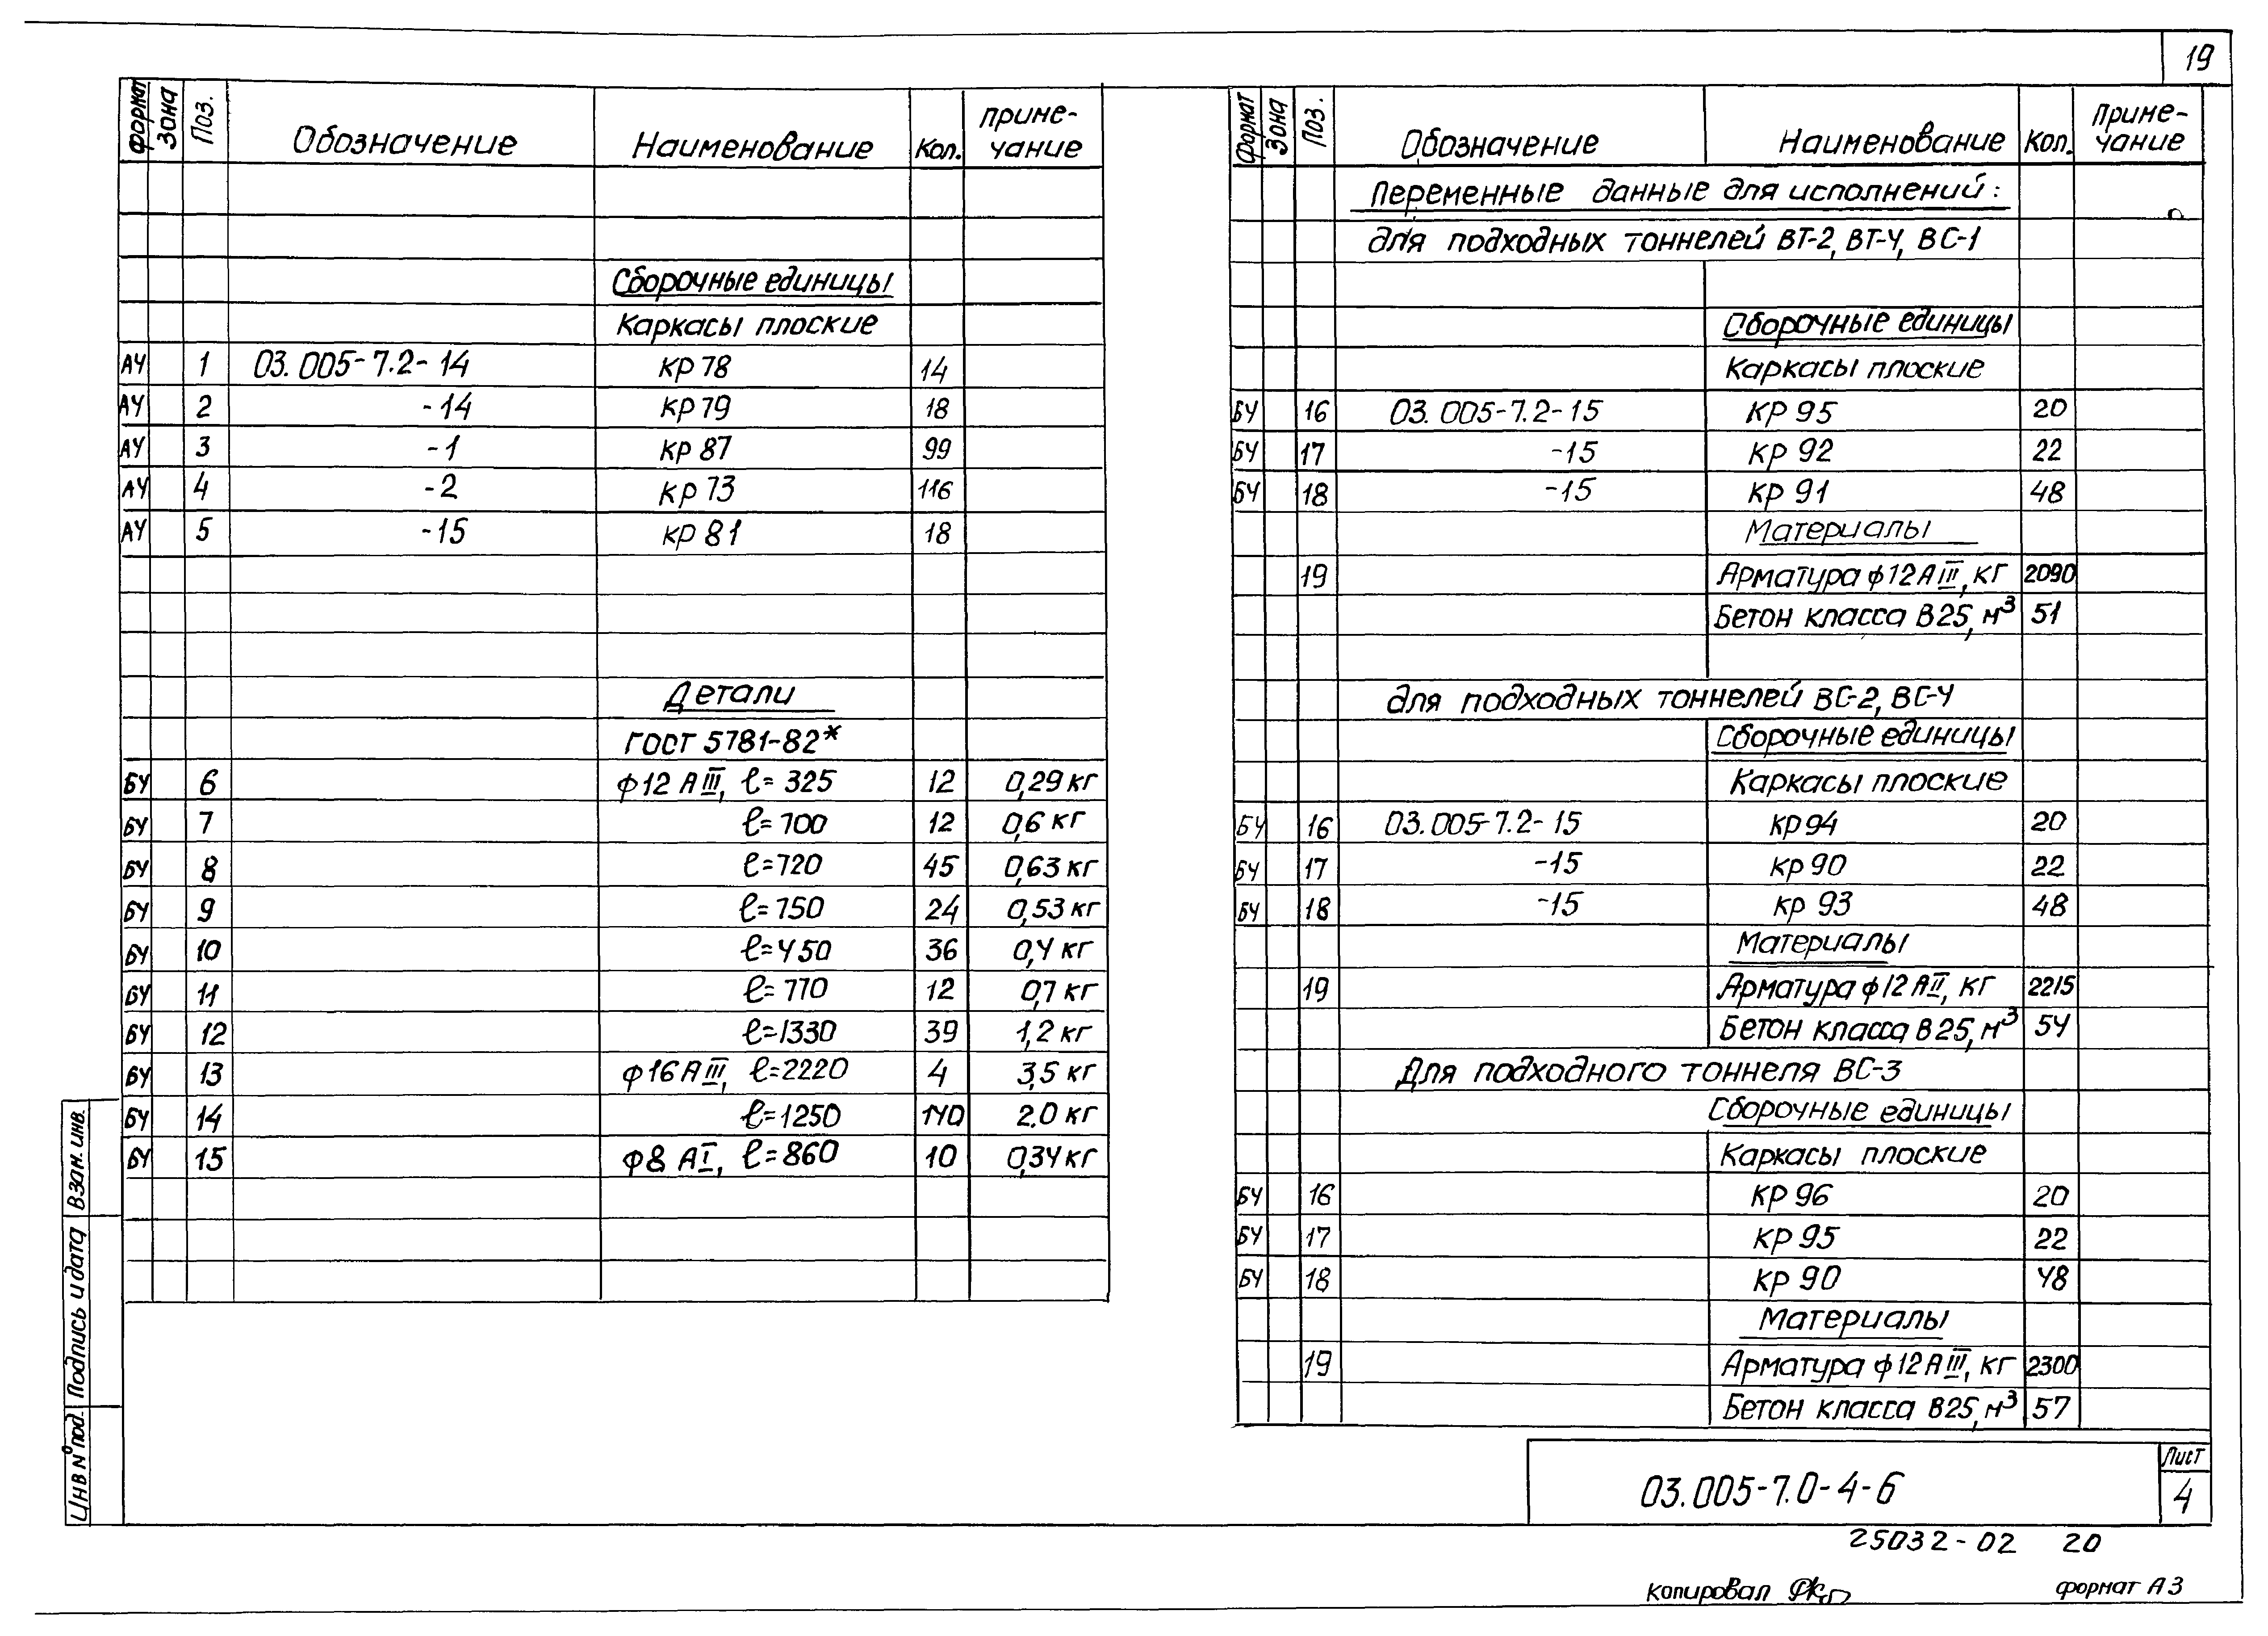 19
Формат Зона Поз. Обозначение Наименование Кол. Приме-
чание
Сборочные единицы
Каркасы плоские
А4 1 03.005-7.2-14 КР 78 14
А4 2 -14 КР 79 18
А4 3 -1 КР 87 99
А4 4 -2 КР 73 116
А4 5 -15 КР 81 18
Детали
ГОСТ 5781-82*
БЧ 6 ф12 АIII, ℓ=325 12 0,29 кг
БЧ 7 ℓ=700 12 0,6 кг
БЧ 8 ℓ=720 45 0,63 кг
БЧ 9 ℓ=750 24 0,53 кг
БЧ 10 ℓ=450 36 0,4 кг
БЧ 11 ℓ=770 12 0,7 кг
БЧ 12 ℓ=1330 39 1,2 кг
БЧ 13 ф16 АIII, ℓ=2220 4 3,5 кг
БЧ 14 ℓ=1250 140 2.0 кг
БЧ 15 ф8 АI, ℓ=860 10 0,34 кг
Формат Зона Поз. Обозначение Наименование Кол. Приме-
чание
Переменные данные для исполнений:
для подходных тоннелей ВТ-2, ВТ-4, ВС-1
Сборочные единицы
Каркасы плоские
БЧ 16 03.005-7.2-15 КР 95 20
БЧ 17 -15 КР 92 22
БЧ 18 -15 КР 91 48
Материалы
19 Арматура ф12 АIII, кг 2090
Бетон класса В25, м³ 51
для подходных тоннелей ВС-2, ВС-4
Сборочные единицы
Каркасы плоские
БЧ 16 03.005-7.2-15 КР 94 20
БЧ 17 -15 КР 90 22
БЧ 18 -15 КР 93 48
Материалы
19 Арматура ф12 АII, кг 2215
Бетон класса В25, м³ 54
Для подходного тоннеля ВС-3
Сборочные единицы
Каркасы плоские
БЧ 16 КР 96 20
БЧ 17 КР 95 22
БЧ 18 КР 90 48
Материалы
19 Арматура ф12 АIII, кг 2300
Бетон класса В25, м³ 57
Инв № под. Подпись и дата Взан. инв.
03.005-7.0-4-6
Лист
4
25032-02 20
Копировал
формат А3